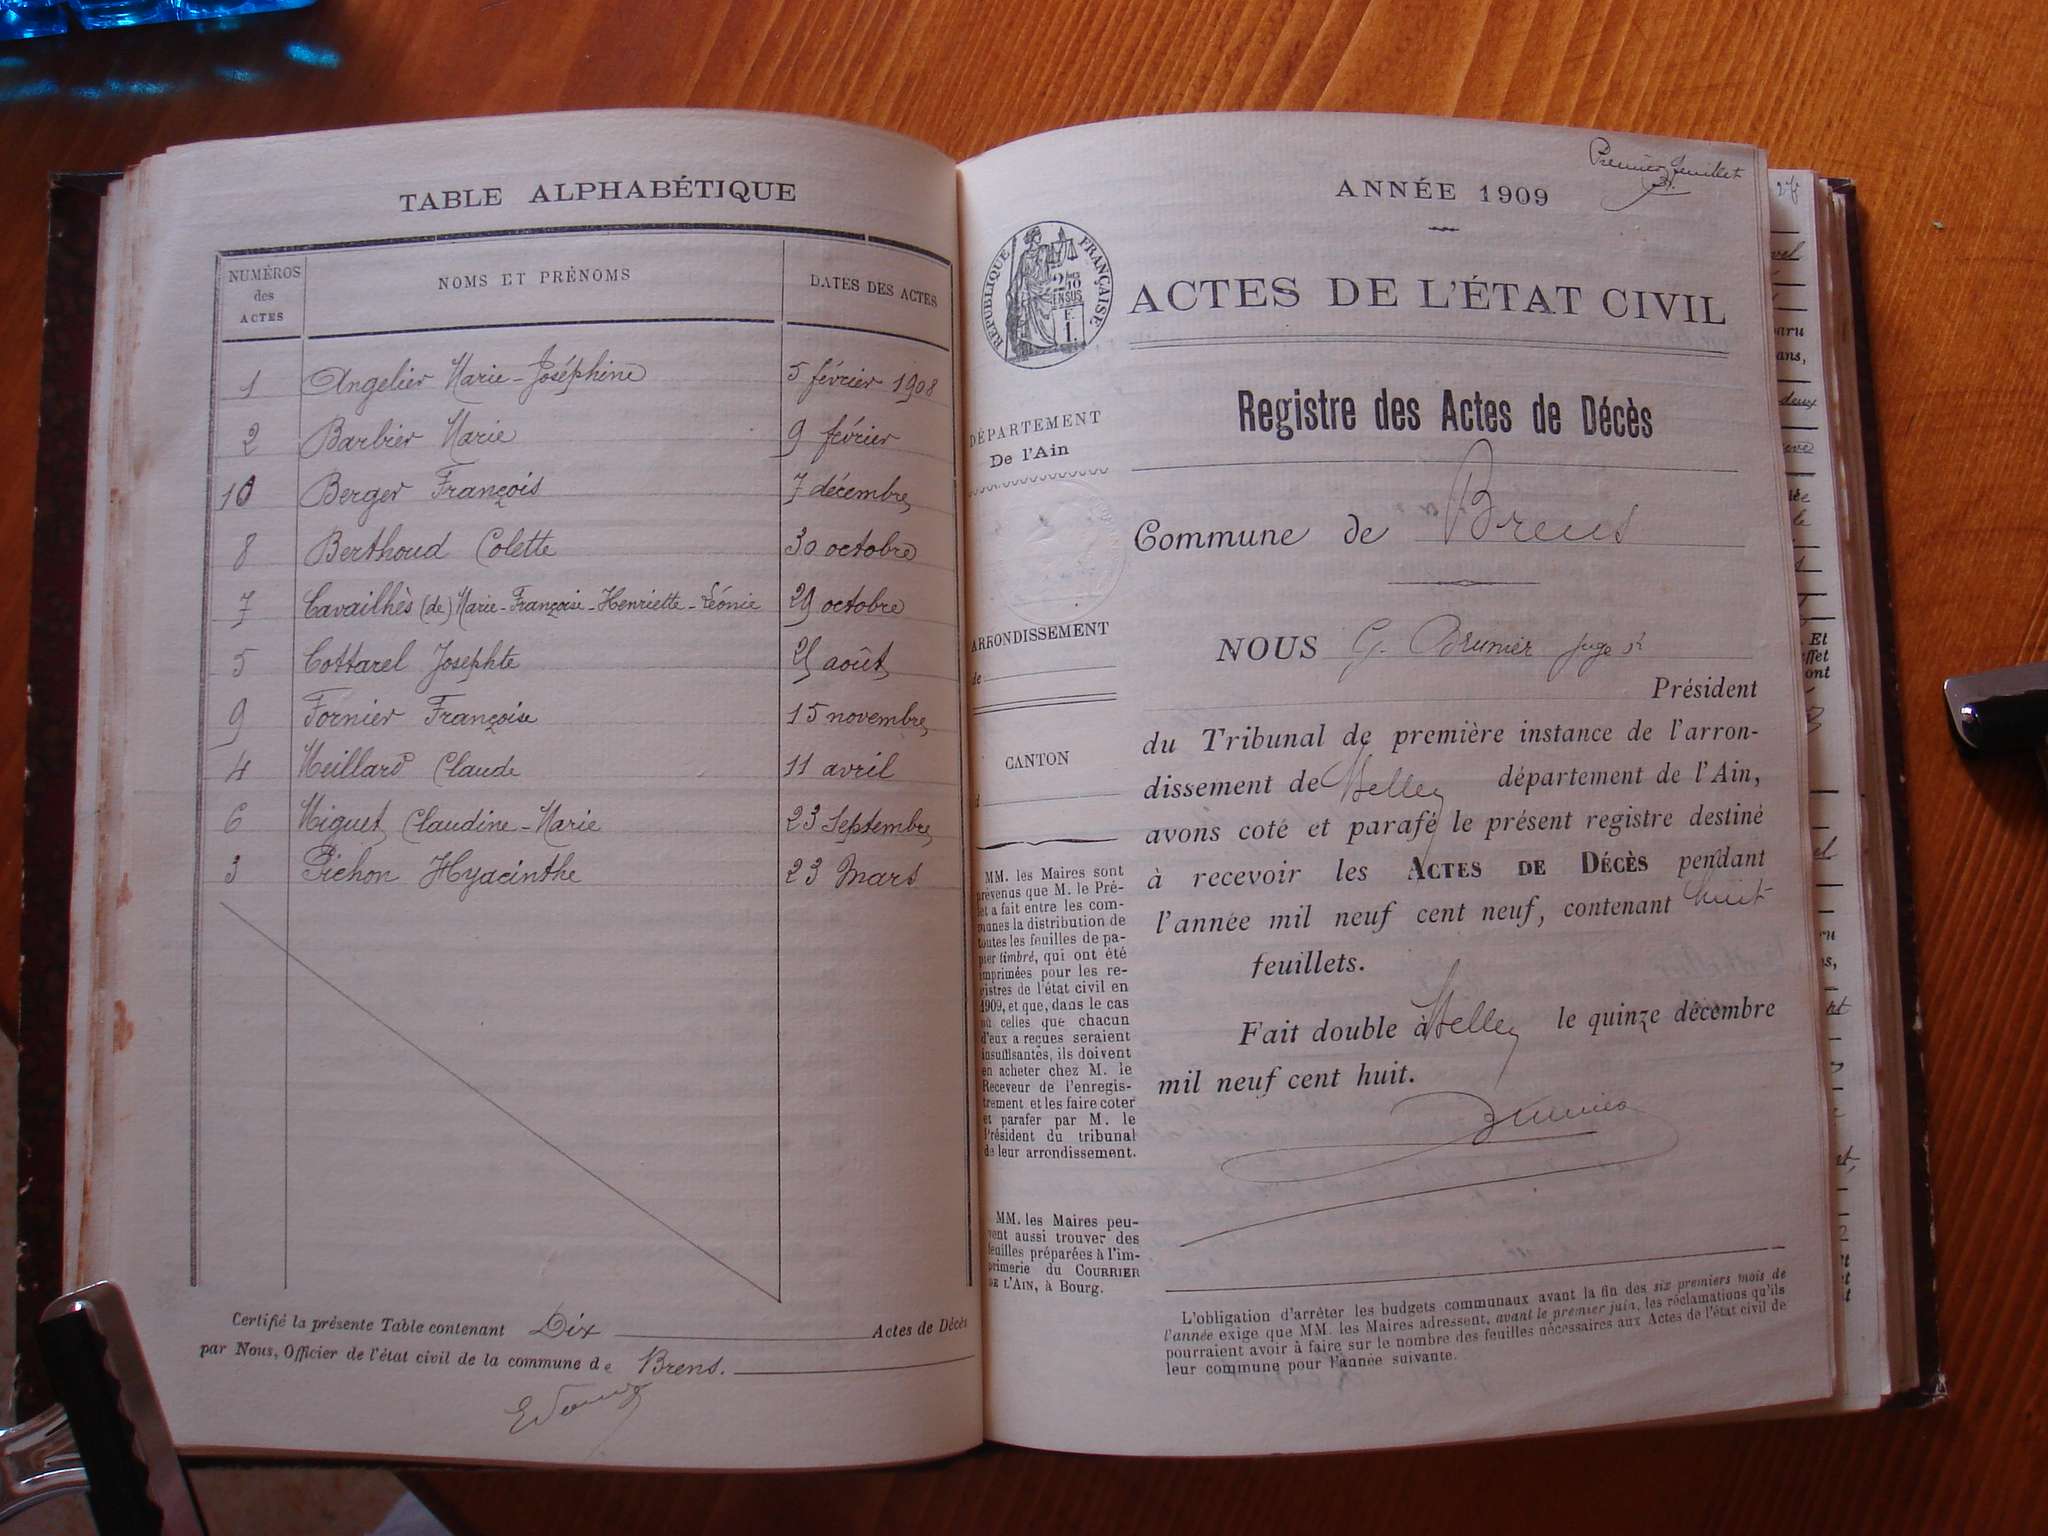 TABLE ALPHABÉTIQUE
NUMÉROS des ACTES NOMS ET PRÉNOMS DATES DES ACTES
1 Angelier Marie-Joséphine 5 février 1908
2 Barbier Marie 9 février
10 Berger François 7 décembre
8 Berthoud Colette 30 octobre
7 Cavailhès (de) Marie-Françoise-Henriette-Léonie 29 octobre
5 Cottarel Josephte 25 août
9 Fornier Françoise 15 novembre
4 Meillard Claude 11 avril
6 Miguet Claudine-Marie 23 Septembre
3 Pichon Hyacinthe 23 Mars
Certifié la présente Table contenant Dix Actes de Décès
par Nous, Officier de l'état civil de la commune de Brens.
Premier feuillet
ANNÉE 1909
RÉPUBLIQUE FRANÇAISE
2/10 EN SUS
F. 1.
ACTES DE L'ÉTAT CIVIL
DÉPARTEMENT
De l'Ain
ARRONDISSEMENT
de
CANTON
d
MM. les Maires sont
prévenus que M. le Pré-
fet a fait entre les com-
munes la distribution de
toutes les feuilles de pa-
pier timbré, qui ont été
imprimées pour les re-
gistres de l'état civil en
1909, et que, dans le cas
où celles que chacun
d'eux a reçues seraient
insuffisantes, ils doivent
en acheter chez M. le
Receveur de l'enregis-
trement et les faire coter
et parafer par M. le
Président du tribunal
de leur arrondissement.
MM. les Maires peu-
vent aussi trouver des
feuilles préparées à l'im-
primerie du COURRIER
DE L'AIN, à Bourg.
Registre des Actes de Décès
Commune de Brens
NOUS G. Brunier Juge
Président
du Tribunal de première instance de l'arron-
dissement de Belley département de l'Ain,
avons coté et parafé le présent registre destiné
à recevoir les ACTES DE DÉCÈS pendant
l'année mil neuf cent neuf, contenant huit
feuillets.
Fait double à Belley le quinze décembre
mil neuf cent huit.
Brunier
L'obligation d'arrêter les budgets communaux avant la fin des six premiers mois de
l'année exige que MM. les Maires adressent, avant le premier juin, les réclamations qu'ils
pourraient avoir à faire sur le nombre des feuilles nécessaires aux Actes de l'état civil de
leur commune pour l'année suivante.